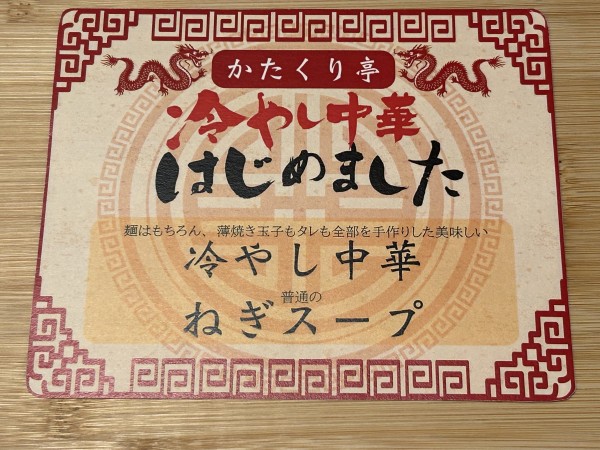 かたくり亭
冷やし中華
はじめました
麺はもちろん、薄焼き玉子もタレも全部を手作りした美味しい
冷やし中華
普通の
ねぎスープ